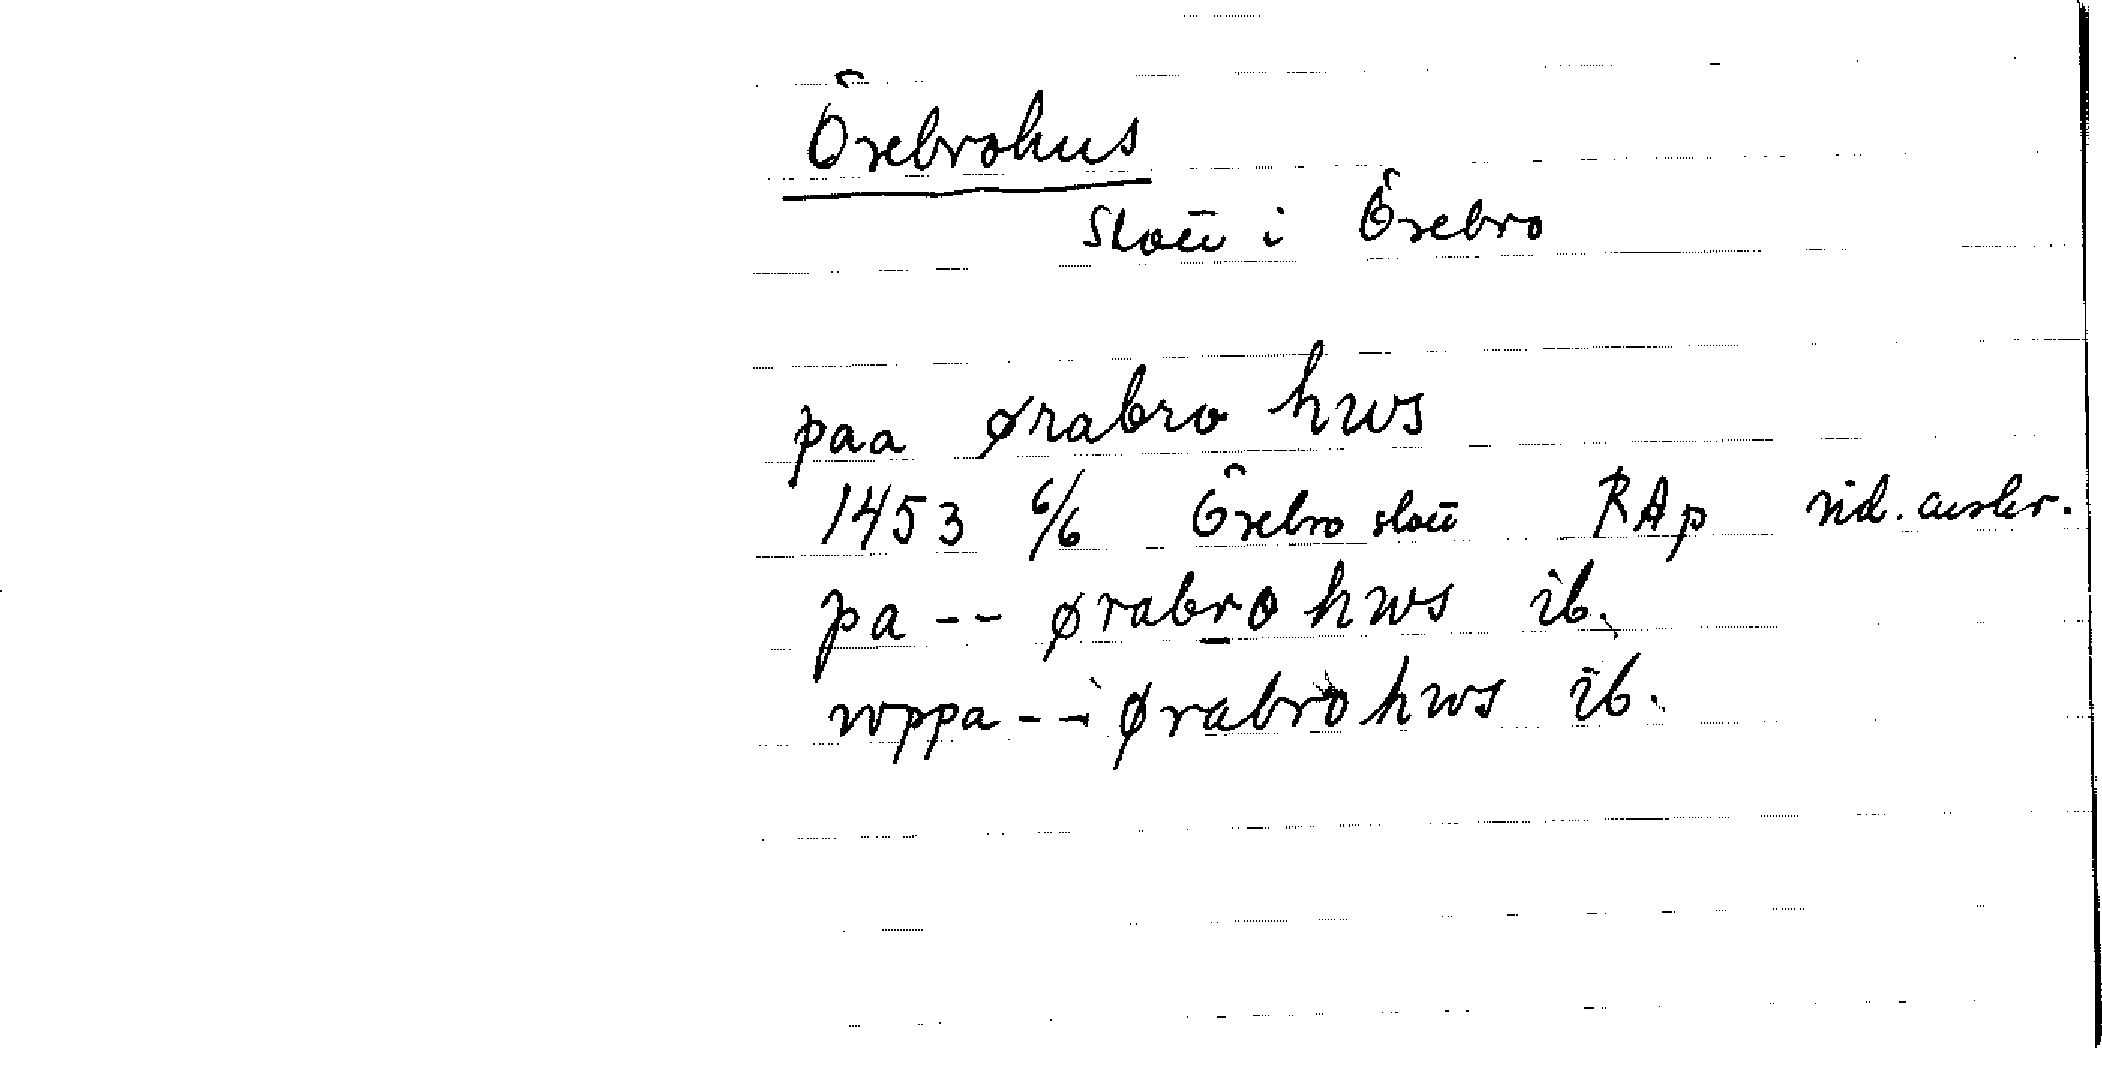 Örebrohus
Slott i Örebro
paa ørabro hws
1453 6/6 Örebro slott RAp vid. avskr.
pa -- ørabro hws ib.
wppa -- ørabro hws ib.